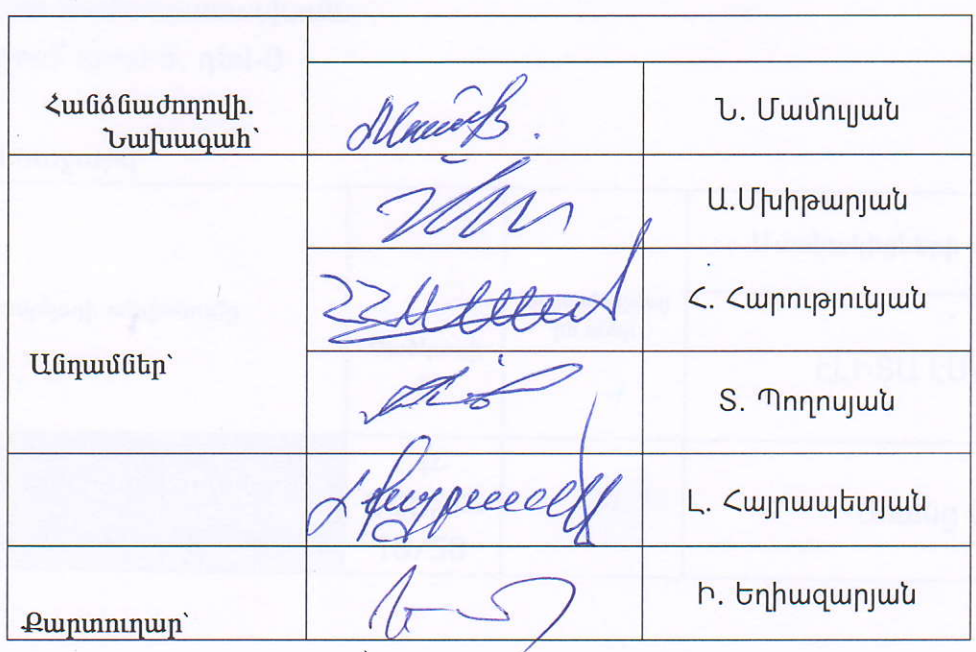 Հանձնաժողովի.
Նախագահ՝
Ն. Մամուլյան
Ա.Մխիթարյան
Հ. Հարությունյան
Անդամներ՝
Տ. Պողոսյան
Լ. Հայրապետյան
Քարտուղար՝
Ի. Եղիազարյան